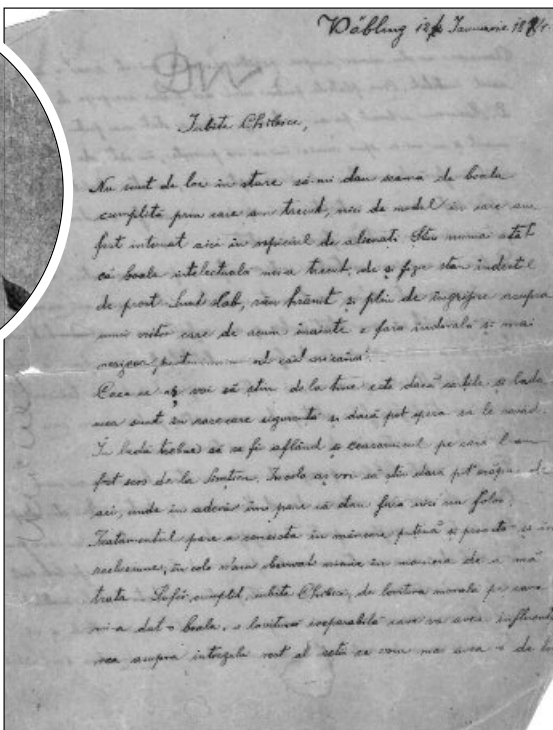 Döbling 12/ Ianuarie 1884.
Iubite Chibici,
Nu sunt de loc in stare să-mi dau seamă de boala
cumplită prin care am trecut, nici de modul in care am
fost internat aici in ospiciul de alienati. Știu numai atât
că boala intelectuala mi-a trecut, de și fizic stau indestul
de prost. Sunt slab, rău hrănit și plin de ingrijire asupra
unui viitor care de acum inainte e fara indoiala și mai
nesigur pentru
Ceea ce aș voi să știu de la tine este dacă cartile și lada
mea sunt in oarecare siguranta si dacă pot spera să le revăd.
In ladă trebue să se fi aflând și ceasornicul pe care l-am
fost scos de la Simtion. Incolo aș voi să știu dacă pot scăpa de
aici, unde in adevăr îmi pare că stau fara nici un folos.
Tratamentul pare a consista in mâncare putină și proastă și in
recluziune; incolo n'am observat nimic in maniera de a mă
trata. Sufăr cumplit, iubite Chibici, de lovitura morala pe care
mi-a dat-o boala, o lovitură ireparabilă care va avea influență
rea asupra intregului rest al vietii ce voiu mai avea-o de